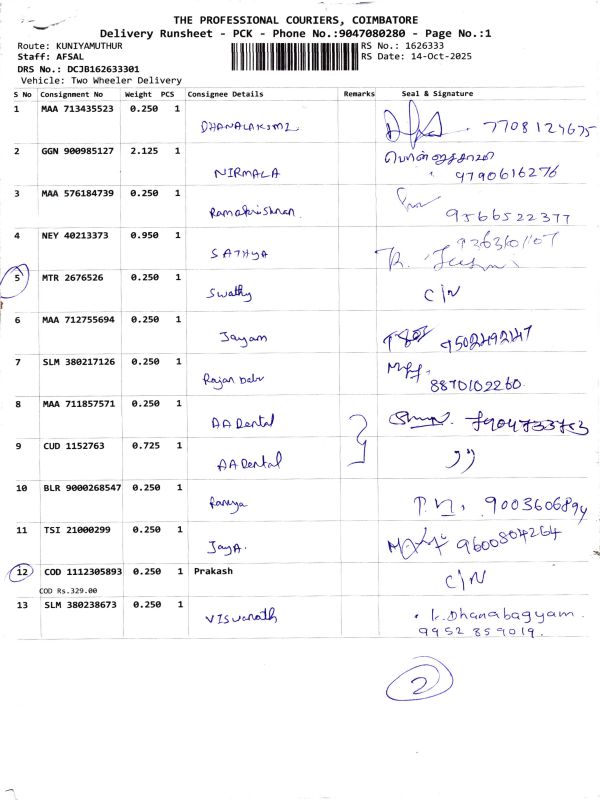 THE PROFESSIONAL COURIERS, COIMBATORE
Delivery Runsheet - PCK - Phone No.:9047080280 - Page No.:1
Route: KUNIYAMUTHUR RS No.: 1626333
Staff: AFSAL RS Date: 14-Oct-2025
DRS No.: DCJB162633301
Vehicle: Two Wheeler Delivery
S No Consignment No Weight PCS Consignee Details Remarks Seal & Signature
1 MAA 713435523 0.250 1 DHANALAKSMI 7708124675
2 GGN 900985127 2.125 1 NIRMALA 9790616276
3 MAA 576184739 0.250 1 Ramakrishnan. 9566522377
4 NEY 40213373 0.950 1 SATHYA
5 MTR 2676526 0.250 1 Swathy C/N
6 MAA 712755694 0.250 1 Jayam
7 SLM 380217126 0.250 1 Rajan babu 8870102260.
8 MAA 711857571 0.250 1 AA Dental
9 CUD 1152763 0.725 1 AA Dental ,,
10 BLR 9000268547 0.250 1 Ramya 9003606894
11 TSI 21000299 0.250 1 JayA. 9600804264
12 COD 1112305893 0.250 1 Prakash C/N
COD Rs.329.00
13 SLM 380238673 0.250 1 Viswanath k. Dhanabagyam
9952859019.
2